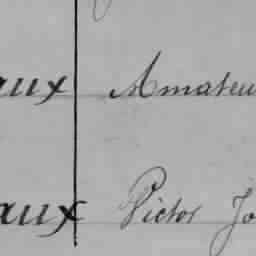 aux Amateu
aux Victor Jo